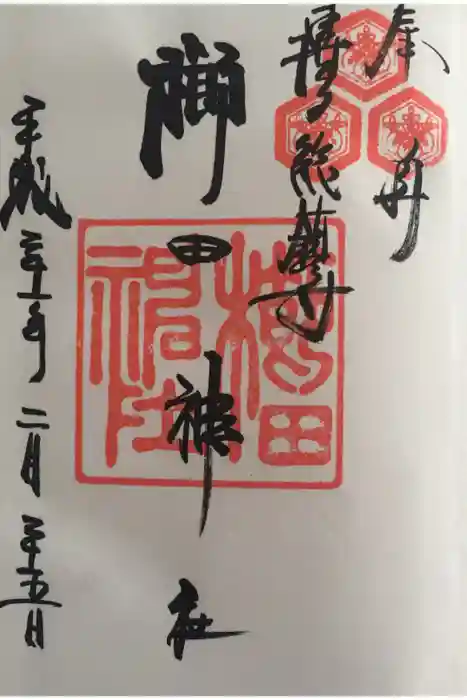 奉拝
博多総鎮守
櫛田神社
平成三十一年二月二十五日
櫛田
神社